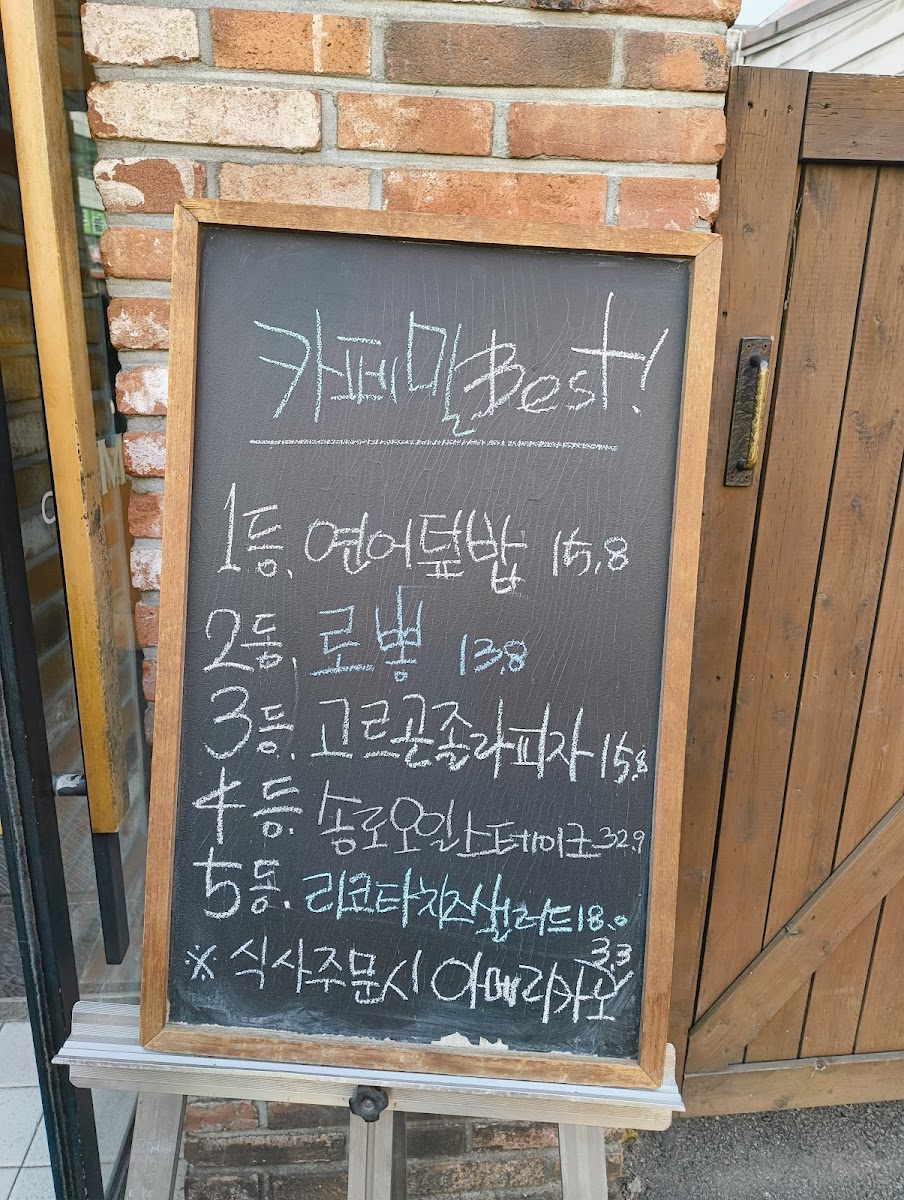 카페 밀 Best!
1등. 연어덮밥 15,8
2등. 로뽕 13,8
3등. 고르곤졸라피자 15,8
4등. 송로오일스테이크 32.9
5등. 리코타치즈샐러드 18.0
※ 식사주문시 아메리카노 3.3